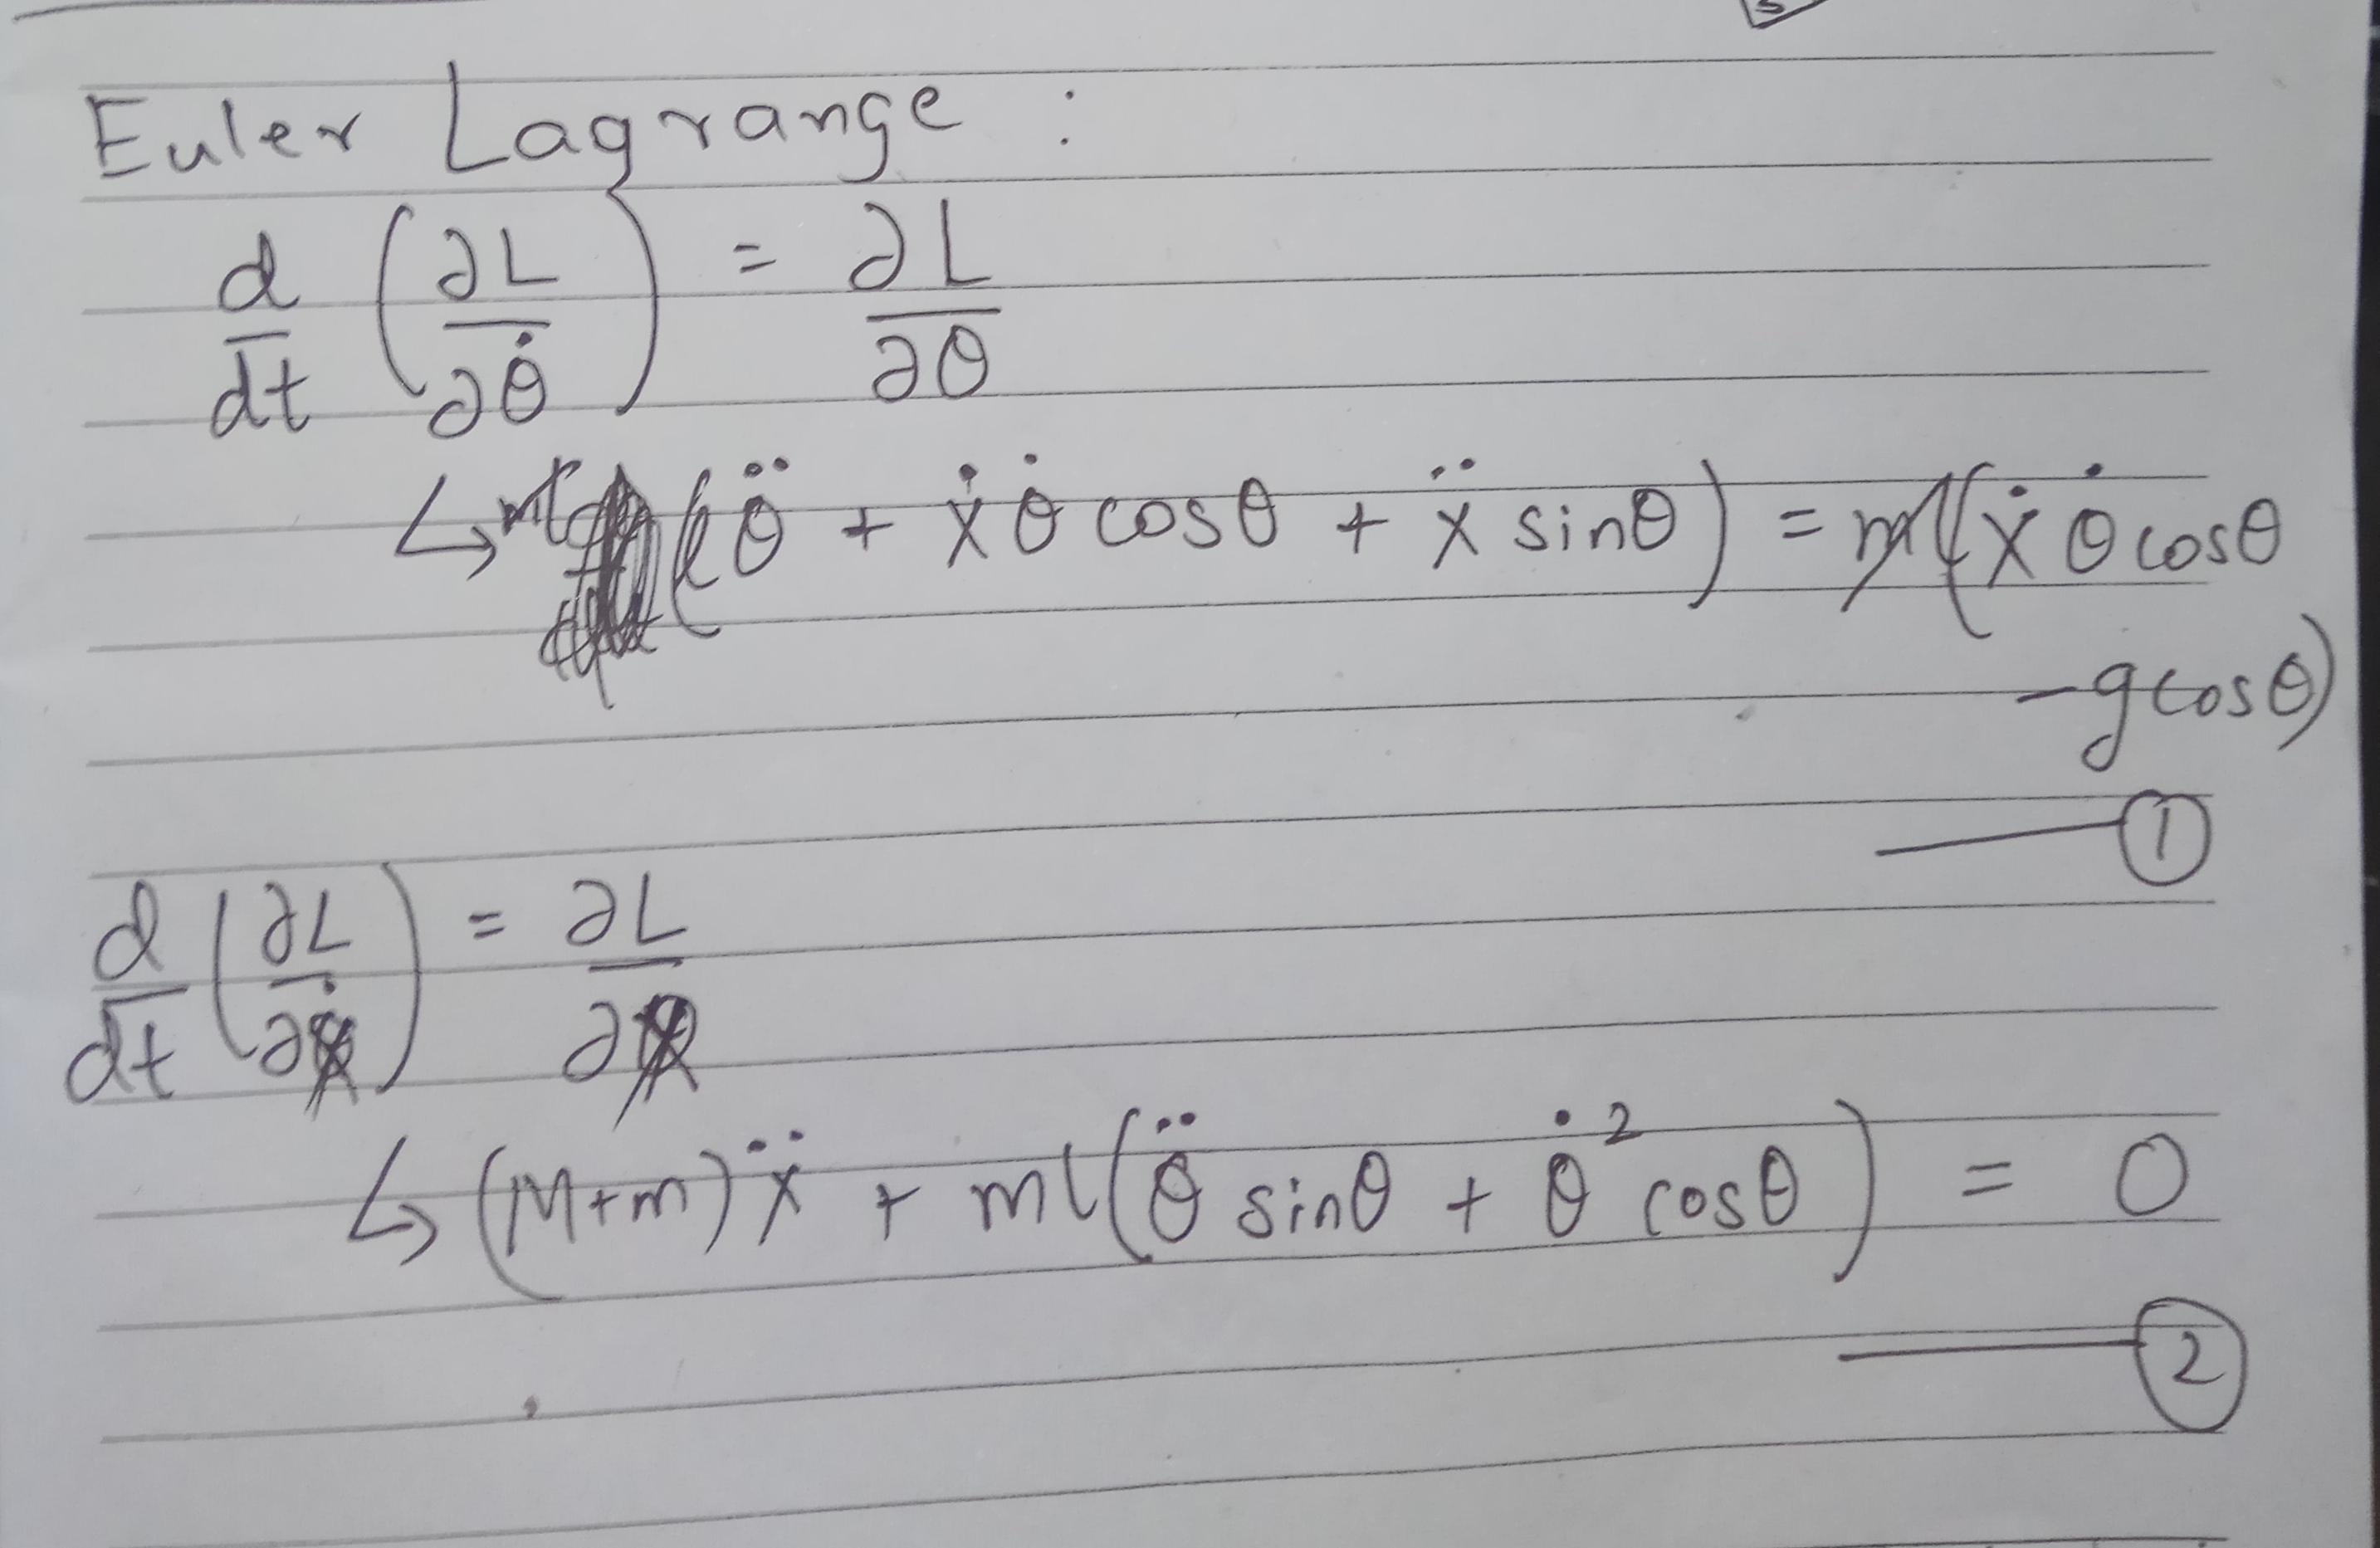 Euler Lagrange :
d/dt (∂L/∂θ̇) = ∂L/∂θ
↳ ml (lθ̈ + ẋ θ̇ cosθ + ẍ sinθ) = ml(ẋ θ̇ cosθ
- g cosθ)
①
d/dt (∂L/∂ẋ) = ∂L/∂x
↳ (M+m) ẍ + ml(θ̈ sinθ + θ̇² cosθ) = 0
②